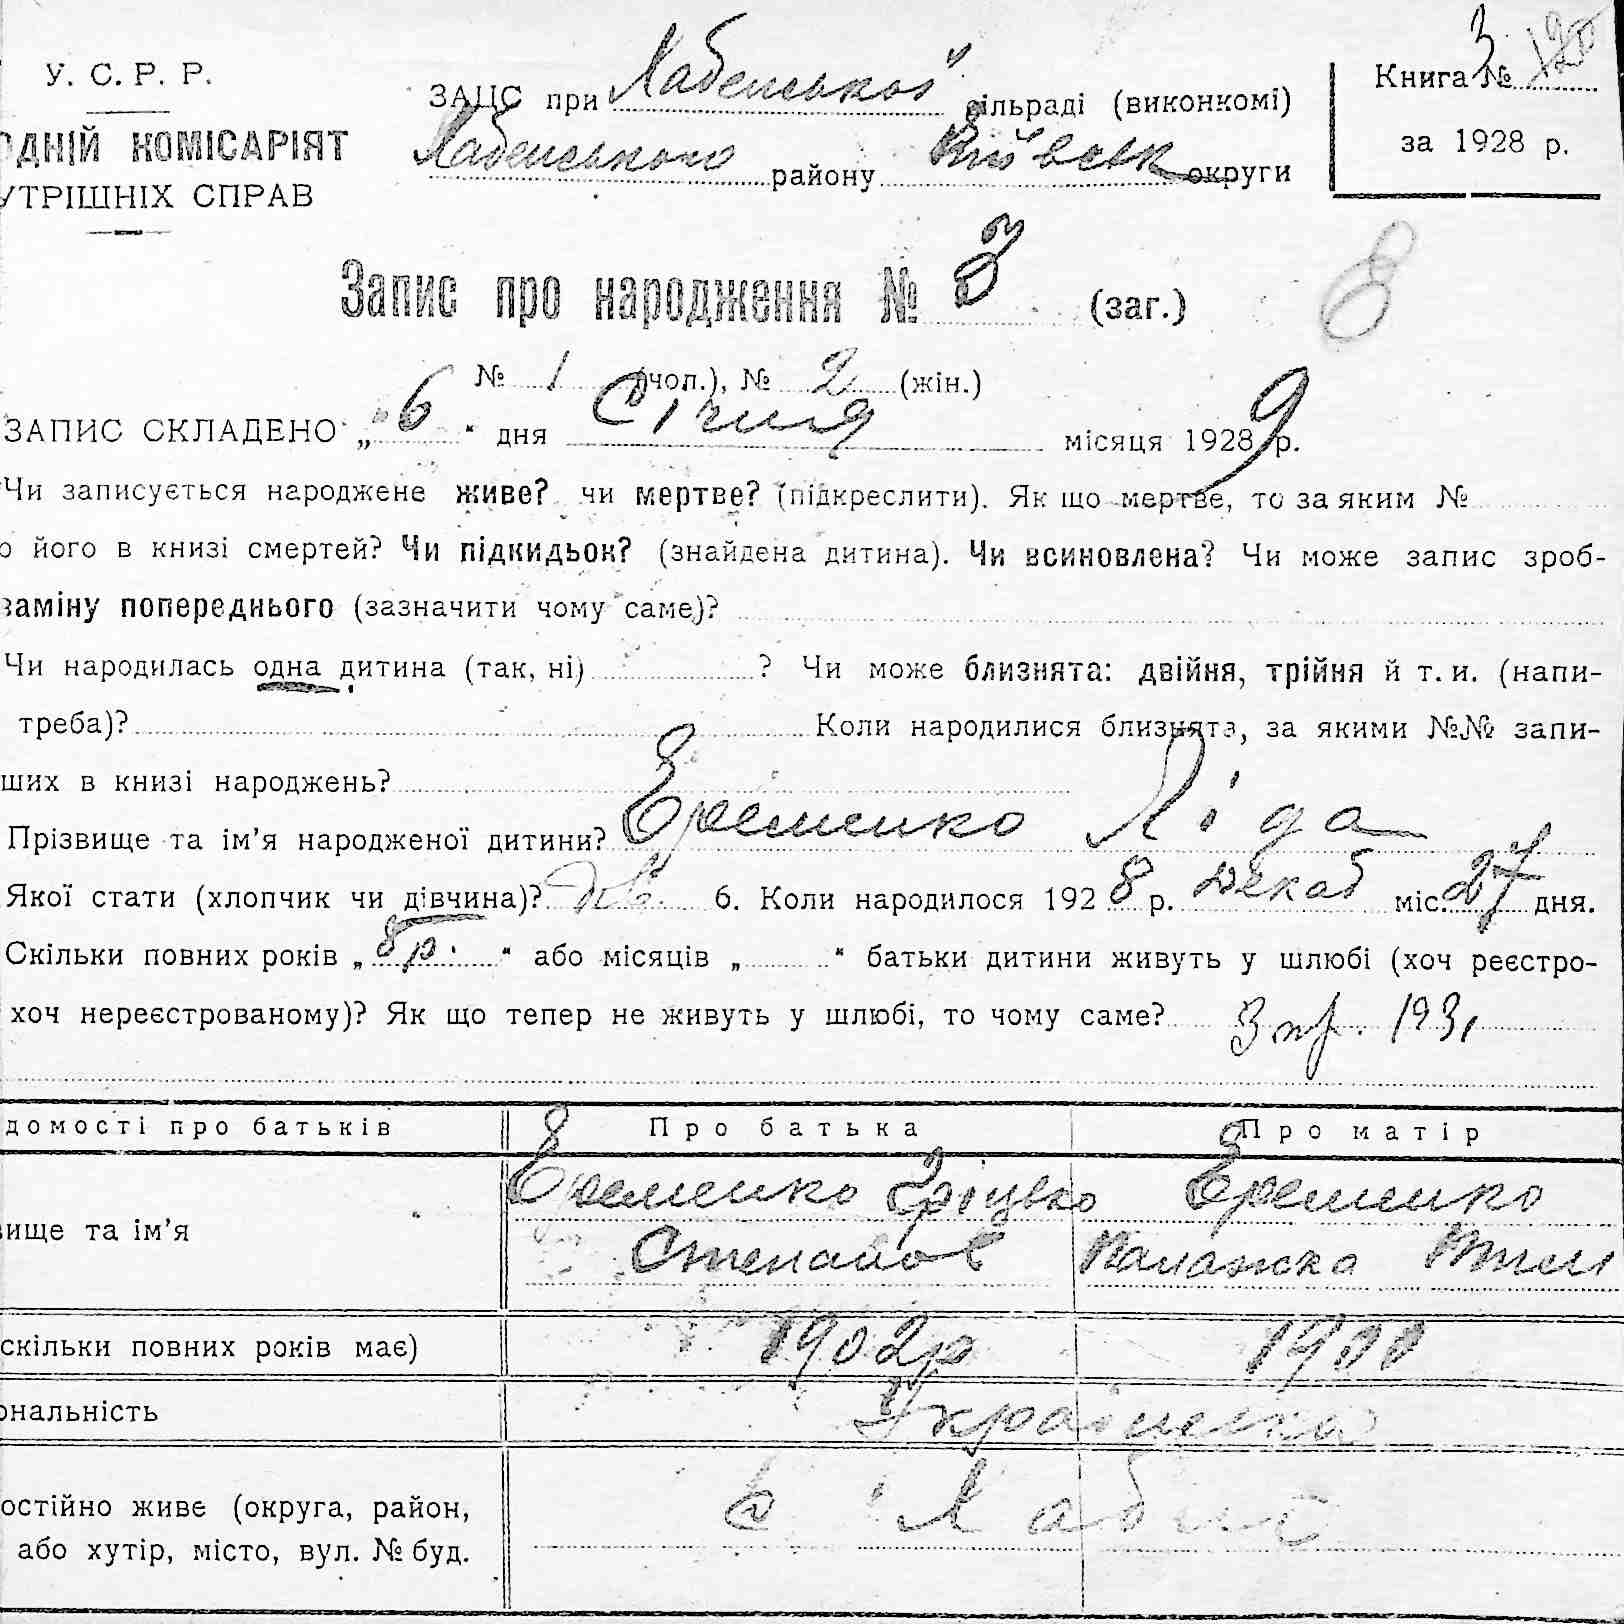 У. С. Р. Р.
ОДНІЙ КОМІСАРІЯТ
УТРІШНІХ СПРАВ
ЗАЦС при Хабенської сільраді (виконкомі)
Хабенського району Київськ округи
Книга № 3
за 1928 р.
Запис про народження № 3 (заг.)
№ 1 (чол.), № 2 (жін.)
ЗАПИС СКЛАДЕНО „6“ дня Січня місяця 1928 9 р.
Чи записується народжене живе? чи мертве? (підкреслити). Як що мертве, то за яким №
о його в книзі смертей? Чи підкидьок? (знайдена дитина). Чи всиновлена? Чи може запис зроб-
заміну попереднього (зазначити чому саме)?
Чи народилась одна дитина (так, ні) ? Чи може близнята: двійня, трійня й т. и. (напи-
треба)? Коли народилися близнята, за якими №№ запи-
ших в книзі народжень?
Прізвище та ім’я народженої дитини? Еременко Ліда
Якої стати (хлопчик чи дівчина)? дів. 6. Коли народилося 1928 р. декаб міс. 27 дня.
Скільки повних років „8р.“ або місяців „ “ батьки дитини живуть у шлюбі (хоч реєстро-
хоч нереєстрованому)? Як що тепер не живуть у шлюбі, то чому саме?
домості про батьків Про батька Про матір
вище та ім’я Еременко Гріцько Еременко
Степанов
скільки повних років має) 1902р 1900
ональність Українська
остійно живе (округа, район,
або хутір, місто, вул. № буд.